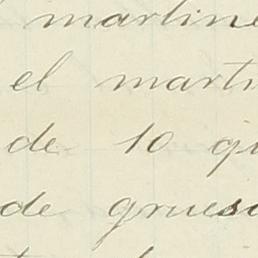 martine
el marti
de 10 qu
de grueso